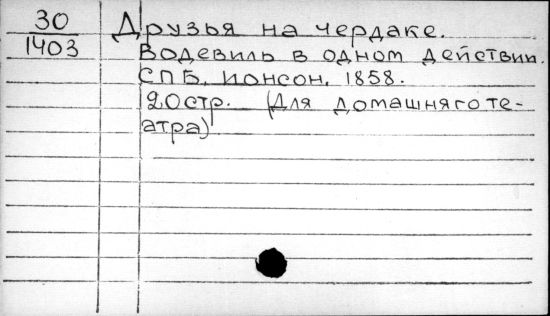 30
1403
Друзья на чердаке.
Водевиль в одном действии.
СПБ, Ионсон, 1858.
20стр. (Для домашняго те-
атра)